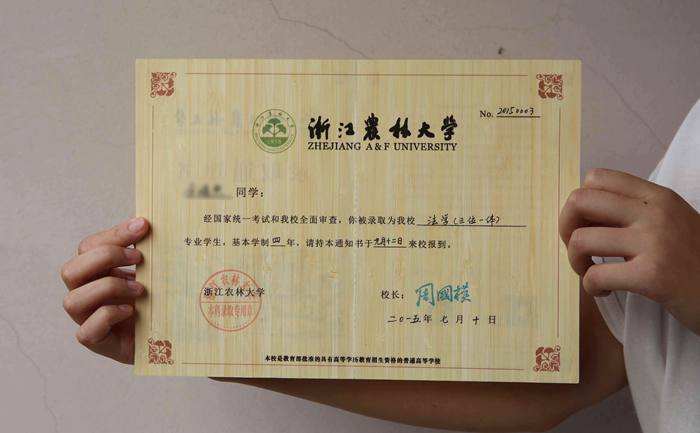 浙江农林大学
ZHEJIANG A&F UNIVERSITY
No. 20150003
同学:
经国家统一考试和我校全面审查,你被录取为我校 法学(三位一体)
专业学生,基本学制四年,请持本通知书于九月十二日来校报到。
浙江农林大学
本科录取专用章
校长:周国模
二〇一五年七月十日
本校是教育部批准的具有高等学历教育招生资格的普通高等学校